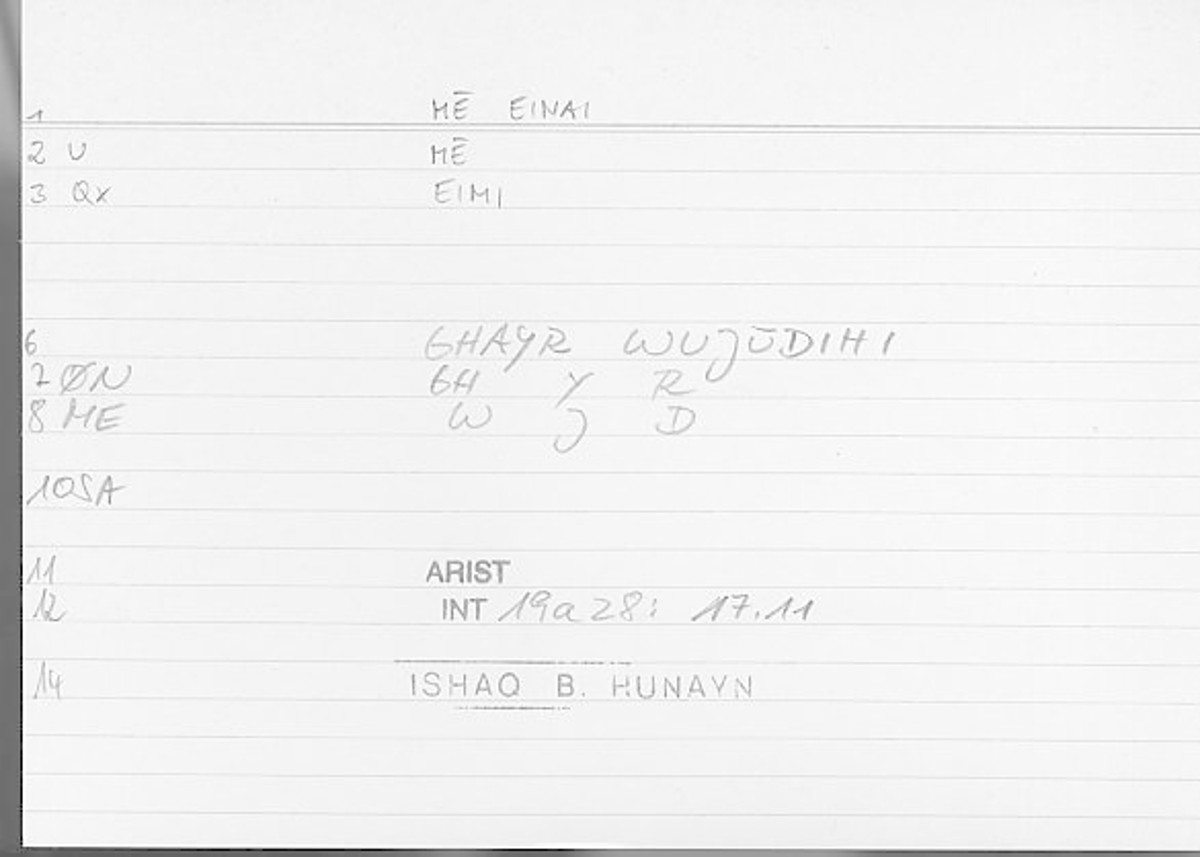 1 MĒ EINAI
2 U MĒ
3 Qx EIMI
6 GHAYR WUJŪDIHI
7 ØN GH Y R
8 ME W J D
10 SA
11 ARIST
12 INT 19a28: 17.11
14 ISHAQ B. HUNAYN